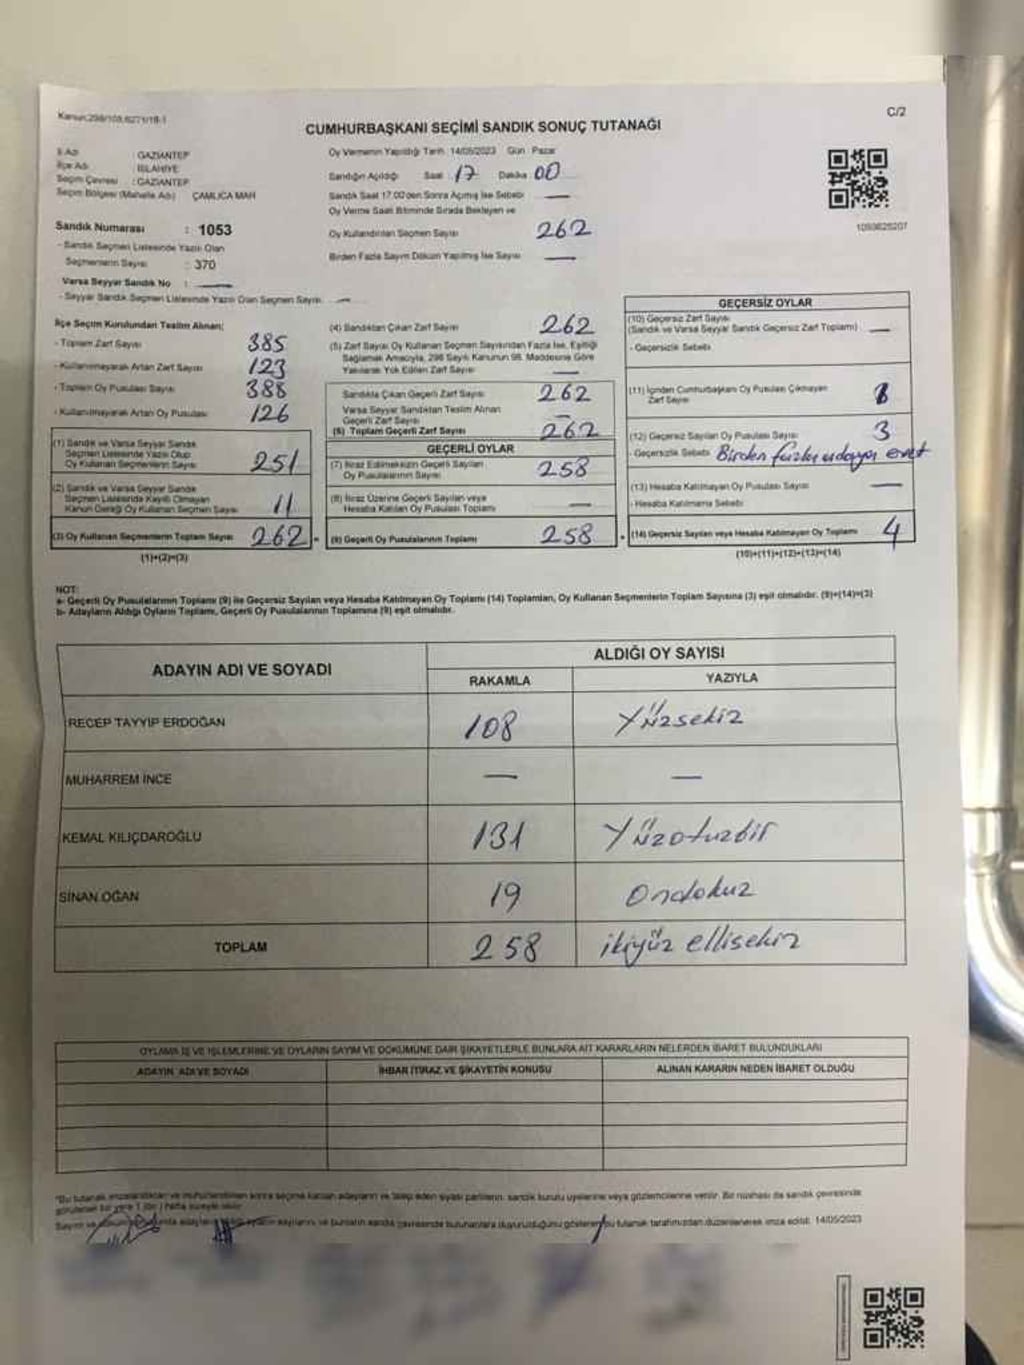 Kanun:298/105,6271/19-1
C/2
CUMHURBAŞKANI SEÇİMİ SANDIK SONUÇ TUTANAĞI
İl Adı : GAZİANTEP
İlçe Adı : İSLAHİYE
Seçim Çevresi : GAZİANTEP
Seçim Bölgesi (Mahalle Adı) ÇAMLICA MAH
Sandık Numarası : 1053
- Sandık Seçmen Listesinde Yazılı Olan
Seçmenlerin Sayısı : 370
Varsa Seyyar Sandık No : —
- Seyyar Sandık Seçmen Listesinde Yazılı Olan Seçmen Sayısı —
Oy Vermenin Yapıldığı Tarih 14/05/2023 Gün Pazar
Sandığın Açıldığı Saat 17 Dakika 00
Sandık Saat 17.00'den Sonra Açılmış İse Sebebi —
Oy Verme Saati Bitiminde Sırada Bekleyen ve
Oy Kullandırılan Seçmen Sayısı 262
Birden Fazla Sayım Döküm Yapılmış İse Sayısı —
1053625207
İlçe Seçim Kurulundan Teslim Alınan;
- Toplam Zarf Sayısı 385
- Kullanılmayarak Artan Zarf Sayısı 123
- Toplam Oy Pusulası Sayısı 388
- Kullanılmayarak Artan Oy Pusulası 126
(1) Sandık ve Varsa Seyyar Sandık
Seçmen Listesinde Yazılı Olup
Oy Kullanan Seçmenlerin Sayısı 251
(2) Sandık ve Varsa Seyyar Sandık
Seçmen Listesinde Kayıtlı Olmayan
Kanun Gereği Oy Kullanan Seçmen Sayısı 11
(3) Oy Kullanan Seçmenlerin Toplam Sayısı 262 =
(1)+(2)=(3)
(4) Sandıktan Çıkan Zarf Sayısı 262
(5) Zarf Sayısı Oy Kullanan Seçmen Sayısından Fazla İse, Eşitliği
Sağlamak Amacıyla, 298 Sayılı Kanunun 98. Maddesine Göre
Yakılarak Yok Edilen Zarf Sayısı —
Sandıkta Çıkan Geçerli Zarf Sayısı 262
Varsa Seyyar Sandıktan Teslim Alınan
Geçerli Zarf Sayısı —
(6) Toplam Geçerli Zarf Sayısı 262
GEÇERLİ OYLAR
(7) İtiraz Edilmeksizin Geçerli Sayılan
Oy Pusulalarının Sayısı 258
(8) İtiraz Üzerine Geçerli Sayılan veya
Hesaba Katılan Oy Pusulası Toplamı —
(9) Geçerli Oy Pusulalarının Toplamı 258 +
GEÇERSİZ OYLAR
(10) Geçersiz Zarf Sayısı
(Sandık ve Varsa Seyyar Sandık Geçersiz Zarf Toplamı) —
- Geçersizlik Sebebi
(11) İçinden Cumhurbaşkanı Oy Pusulası Çıkmayan
Zarf Sayısı
(12) Geçersiz Sayılan Oy Pusulası Sayısı 3
- Geçersizlik Sebebi Birden fazla adaya evet
(13) Hesaba Katılmayan Oy Pusulası Sayısı —
- Hesaba Katılmama Sebebi
(14) Geçersiz Sayılan veya Hesaba Katılmayan Oy Toplamı 4
(10)+(11)+(12)+(13)=(14)
NOT:
a- Geçerli Oy Pusulalarının Toplamı (9) ile Geçersiz Sayılan veya Hesaba Katılmayan Oy Toplamı (14) Toplamları, Oy Kullanan Seçmenlerin Toplam Sayısına (3) eşit olmalıdır. (9)+(14)=(3)
b- Adayların Aldığı Oyların Toplamı, Geçerli Oy Pusulalarının Toplamına (9) eşit olmalıdır.
ADAYIN ADI VE SOYADI
ALDIĞI OY SAYISI
RAKAMLA YAZIYLA
RECEP TAYYİP ERDOĞAN 108 Yüzsekiz
MUHARREM İNCE — —
KEMAL KILIÇDAROĞLU 131 Yüzotuzbir
SİNAN OĞAN 19 Ondokuz
TOPLAM 258 ikiyüz ellisekiz
OYLAMA İŞ VE İŞLEMLERİNE VE OYLARIN SAYIM VE DÖKÜMÜNE DAİR ŞİKAYETLERLE BUNLARA AİT KARARLARIN NELERDEN İBARET BULUNDUKLARI
ADAYIN ADI VE SOYADI İHBAR İTİRAZ VE ŞİKAYETİN KONUSU ALINAN KARARIN NEDEN İBARET OLDUĞU
*Bu tutanak imzalandıktan ve mühürlendikten sonra seçime katılan adayların ve talep eden siyasi partilerin sandık kurulu üyelerine veya gözlemcilerine verilir. Bir nüshası da sandık çevresinde
görülecek bir yere 1 (bir) hafta süreyle asılır.
Sayım ve adayların sayılarını ve bunların sandık çevresinde bulunanlara duyurulduğunu gösteren bu tutanak tarafımızdan düzenlenerek imza edildi. 14/05/2023